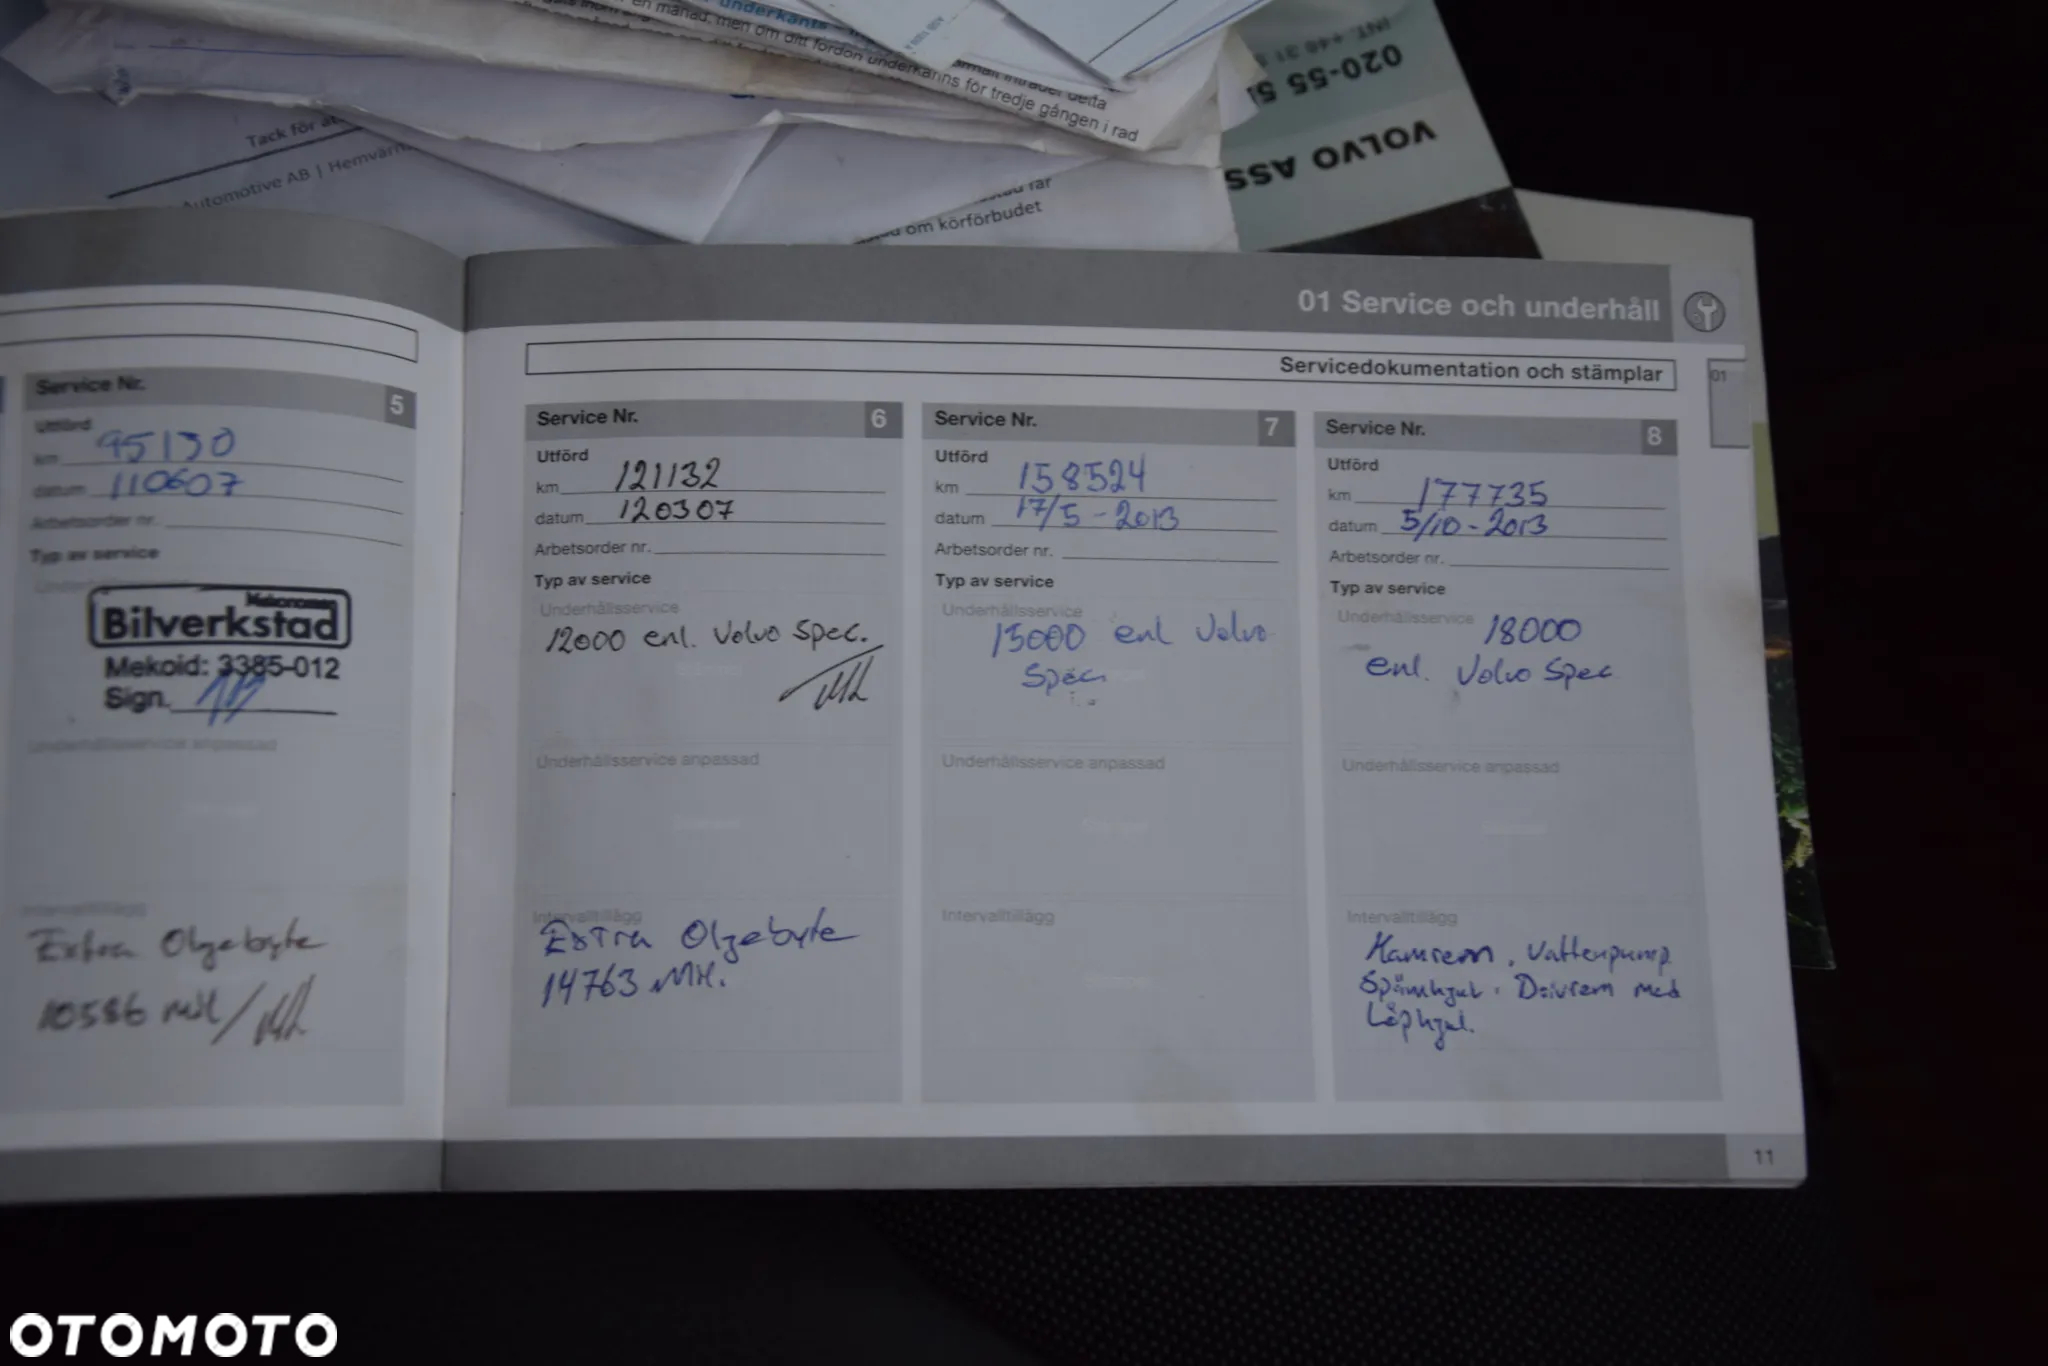 underkänts
en månad, men om ditt fordon underkänns för tredje gången i rad
Tack för
Automotive AB | Hemvärn
om körförbudet
INT. +46 31
020-55 5
VOLVO ASS
01 Service och underhåll
Servicedokumentation och stämplar
01
Service Nr. 5
Utförd
km 95130
datum 110607
Arbetsorder nr.
Typ av service
Mekonomen
Bilverkstad
Mekoid: 3385-012
Sign.
Underhållsservice anpassad
Intervalltillägg
Extra Oljebyte
10586 Mil
Service Nr. 6
Utförd
km 121132
datum 120307
Arbetsorder nr.
Typ av service
Underhållsservice
12000 enl. Volvo Spec.
Underhållsservice anpassad
Intervalltillägg
Extra Oljebyte
14763 Mil.
Service Nr. 7
Utförd
km 158524
datum 17/5 - 2013
Arbetsorder nr.
Typ av service
Underhållsservice
15000 enl Volvo
Spec.
Underhållsservice anpassad
Intervalltillägg
Service Nr. 8
Utförd
km 177735
datum 5/10 - 2013
Arbetsorder nr.
Typ av service
Underhållsservice
18000
enl. Volvo Spec
Underhållsservice anpassad
Intervalltillägg
Kamrem, Vattenpump
Spännhjul. Drivrem med
Löphjul.
11
OTOMOTO